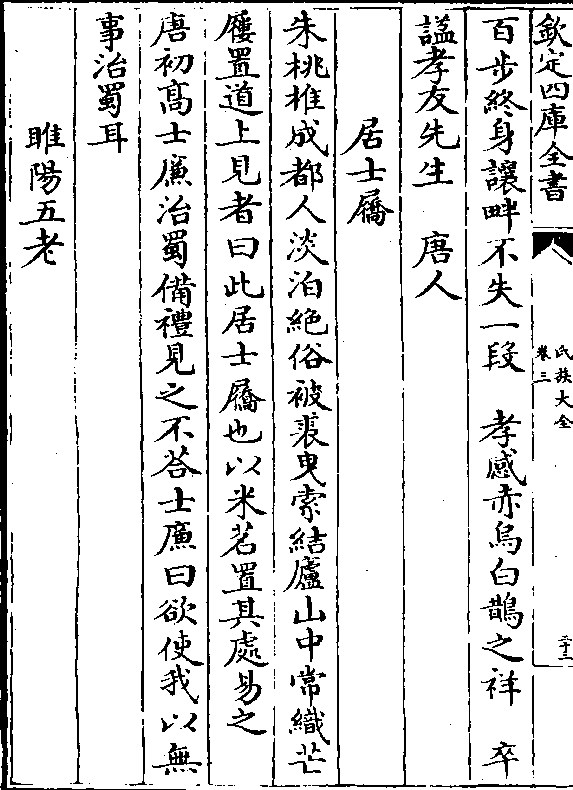 欽定四庫全書
氏族大全
卷三
二十三
百步終身讓畔不失一段 孝感赤烏白鵲之祥 卒
謚孝友先生 唐人
居士屩
朱桃椎成都人淡泊絶俗被裘曳索結廬山中常織芒
屨置道上見者曰此居士屩也以米茗置其處易之
唐初髙士廉治蜀備禮見之不荅士廉曰欲使我以無
事治蜀耳
睢陽五老